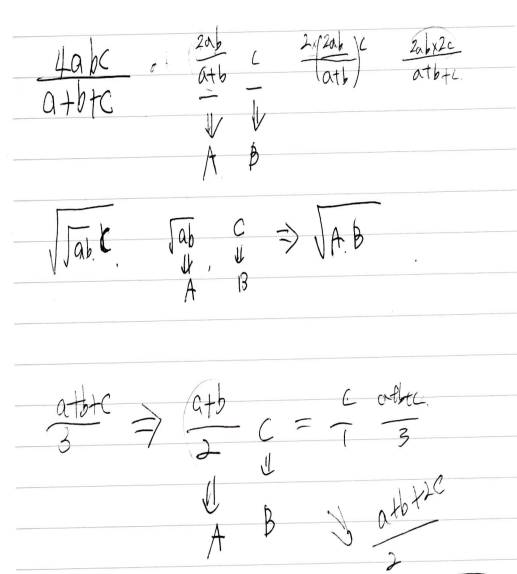 4abc/(a+b+c) 2ab/(a+b) c 2×(2ab/(a+b))c (2ab×2c)/(a+b+c)
⇓ ⇓
A B
√(√ab.c) √ab, c ⇒ √(A.B)
⇓ ⇓
A B
(a+b+c)/3 ⇒ (a+b)/2 c = c/1 (a+b+c)/3
⇓ ⇓
A B ⇘ (a+b+2c)/2